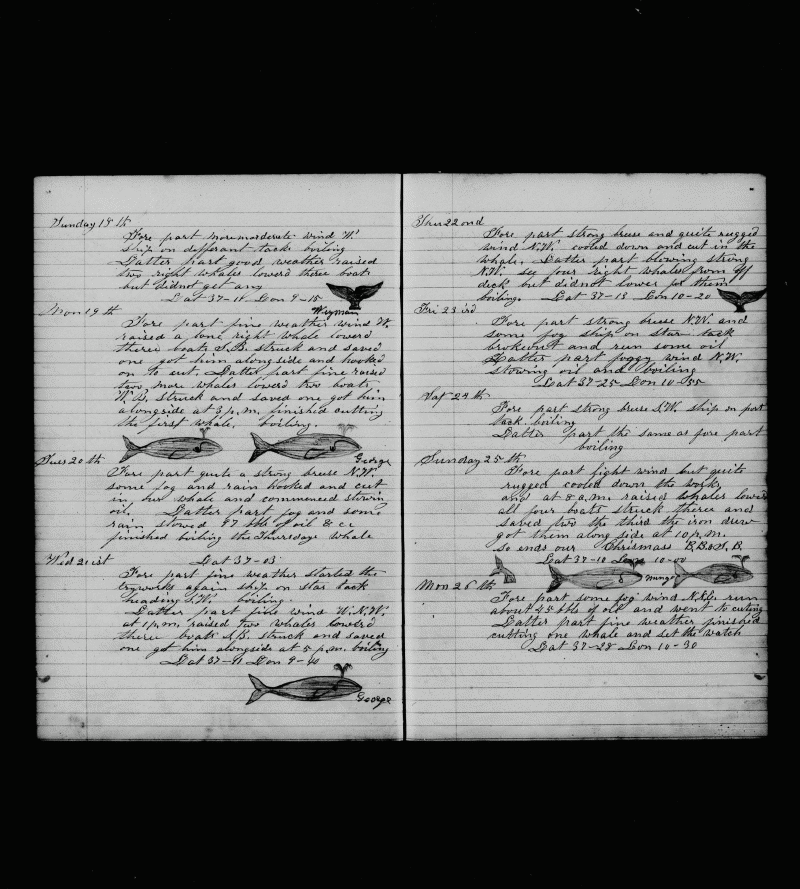 Sunday 18th
Fore part more moderate wind W.
ship on differant tacks boiling
Latter part good weather raised
two right whales lower'd three boats
but didnot get any
Lat 37-18 Lon 9-15
Mon 19th
Wiyman
Fore part fine weather wind W.
raised a lone right whale lower'd
three boats S.B. struck and saved
one got him alongside and hooked
on to cut. Latter part fine raised
two more whales lower'd two boats
W.B. struck and saved one got him
alongside at 3 p.m. finished cutting
the first whale, boiling.
George
Tues 20th
Fore part quite a strong breese N.W.
some fog and rain hooked and cut
in, our whale and commenced stowin
oil. Latter part fog and some
rain stowed 97 bbls of oil &
finished boiling the Thursdays whale
Lat 37-03
Wed 21ist
Fore part fine weather started the
tryworks again ship on star tack
heading S.W. boiling.
Latter part fine wind W.N.W.
at 1 p.m. raised two whales lower'd
three boats S.B. struck and saved
one got him alongside at 5 p.m. boiling
Lat 37-11 Lon 9-40
George
Thu 22ond
Fore part strong breese and quite rugged
wind N.W. cooled down and cut in the
whale. Latter part blowing strong
N.W. see four right whales from off
deck but didnot lower for them
boiling. Lat 37-13 Lon 10-20
Fri 23ird
Fore part strong breese N.W. and
some fog ship on star tack
brokeout and run some oil
Latter part foggy wind N.W.
stowing oil and boiling
Lat 37-25 Lon 10-55
Sat 24th
Fore part strong breese S.W. ship on port
tack boiling
Latter part the same as fore part
boiling
Sunday 25th
Fore part light wind but quite
rugged cooled down the works
and at 8 a.m. raised whales lower
all four boats struck three and
saved two the third the iron drew
got them along side at 10 p.m.
So ends our Chrismass B.B. & S.B.
Lat 37-10 Lon 10-00
Mon 26th
Fore part some fog wind N.E. run
about 45 bbls of oil and went to cuting
Latter part fine weather finished
cutting one whale and set the watch
Lat 37-28 Lon 10-30